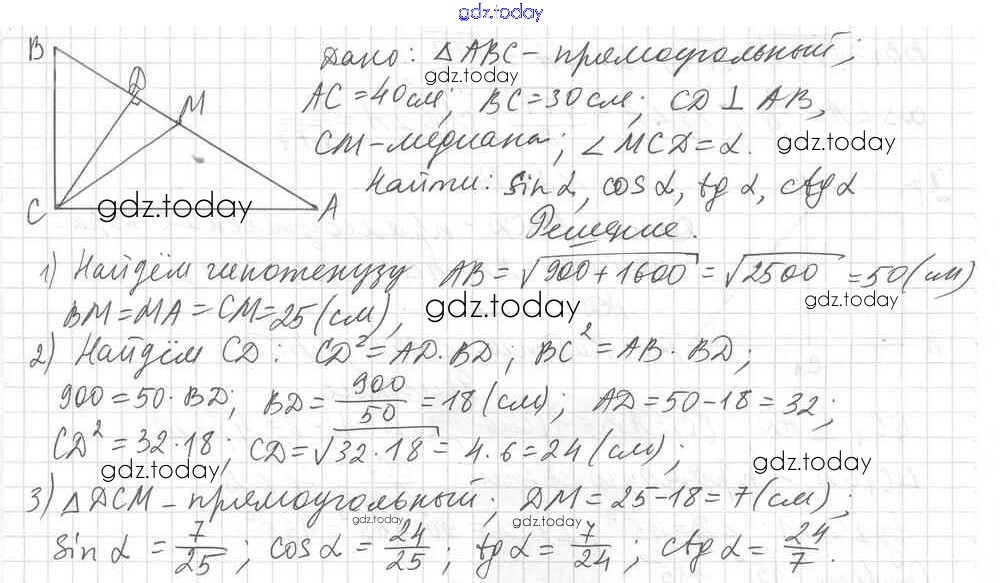 gdz.today
B
D
M
C
A
gdz.today
Дано: △ABC - прямоугольный;
gdz.today
AC = 40 см; BC = 30 см; CD ⊥ AB,
CM - медиана; ∠MCD = α.
gdz.today
Найти: sin α, cos α, tg α, ctg α
Решение.
1) Найдём гипотенузу AB = √(900+1600) = √2500 = 50 (см)
gdz.today
BM = MA = CM = 25 (см);
gdz.today
2) Найдём CD: CD² = AD · BD; BC² = AB · BD;
900 = 50 · BD; BD = 900/50 = 18 (см); AD = 50 - 18 = 32;
CD² = 32 · 18; CD = √(32 · 18) = 4 · 6 = 24 (см);
gdz.today
gdz.today
3) △DCM - прямоугольный; DM = 25 - 18 = 7 (см);
gdz.today
gdz.today
sin α = 7/25; cos α = 24/25; tg α = 7/24; ctg α = 24/7.